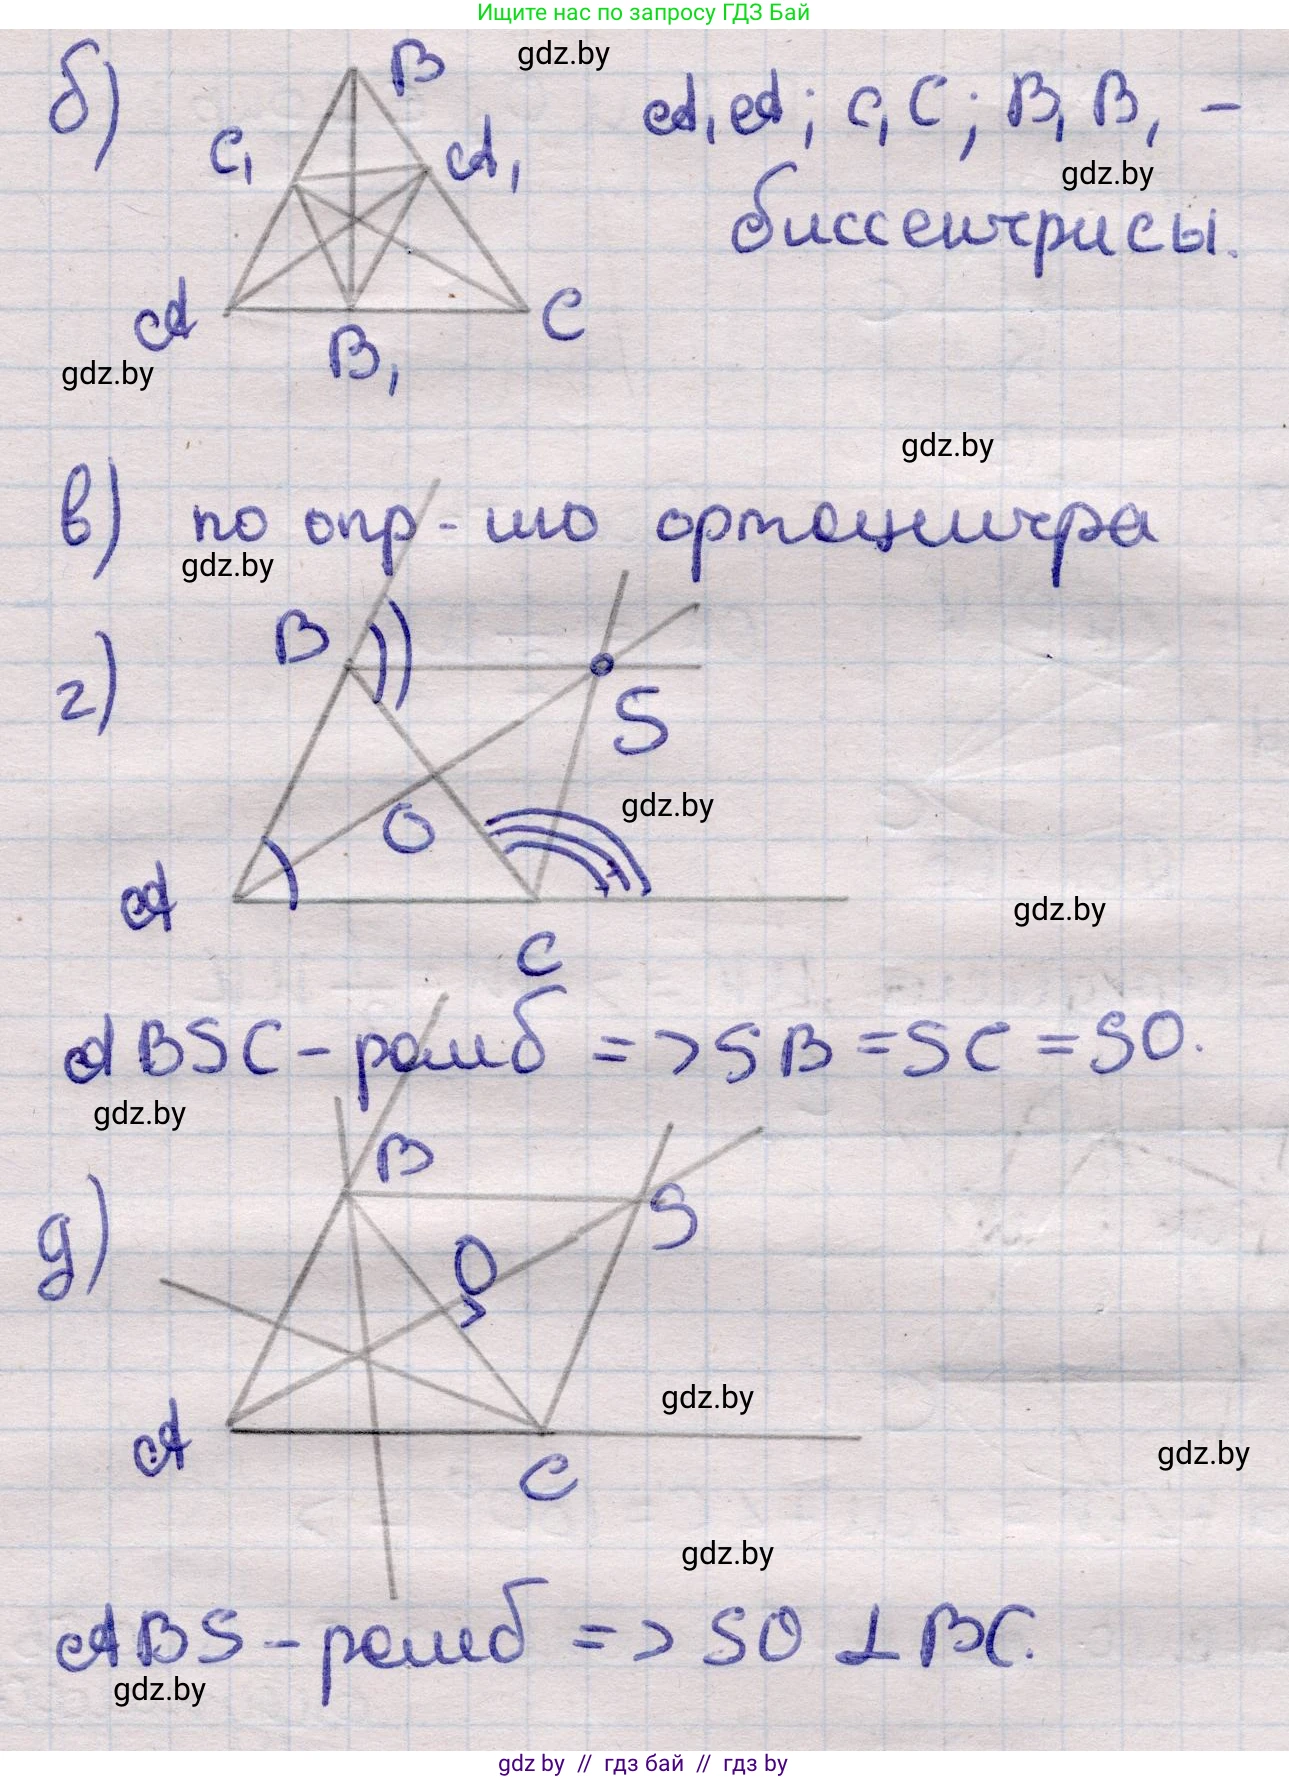 Ищите нас по запросу ГДЗ Бай
gdz.by
б)
B
C₁
A₁
A
B₁
C
A₁A; C₁C; B₁B, -
gdz.by
биссектрисы.
gdz.by
gdz.by
в) по опр-ию ортоцентра
gdz.by
г)
B
S
O
gdz.by
A
C
gdz.by
ABSC - ромб => SB = SC = SO.
gdz.by
д)
B
S
O
A
C
gdz.by
gdz.by
gdz.by
ABS - ромб => SO ⊥ BC.
gdz.by
gdz by // гдз бай // гдз by